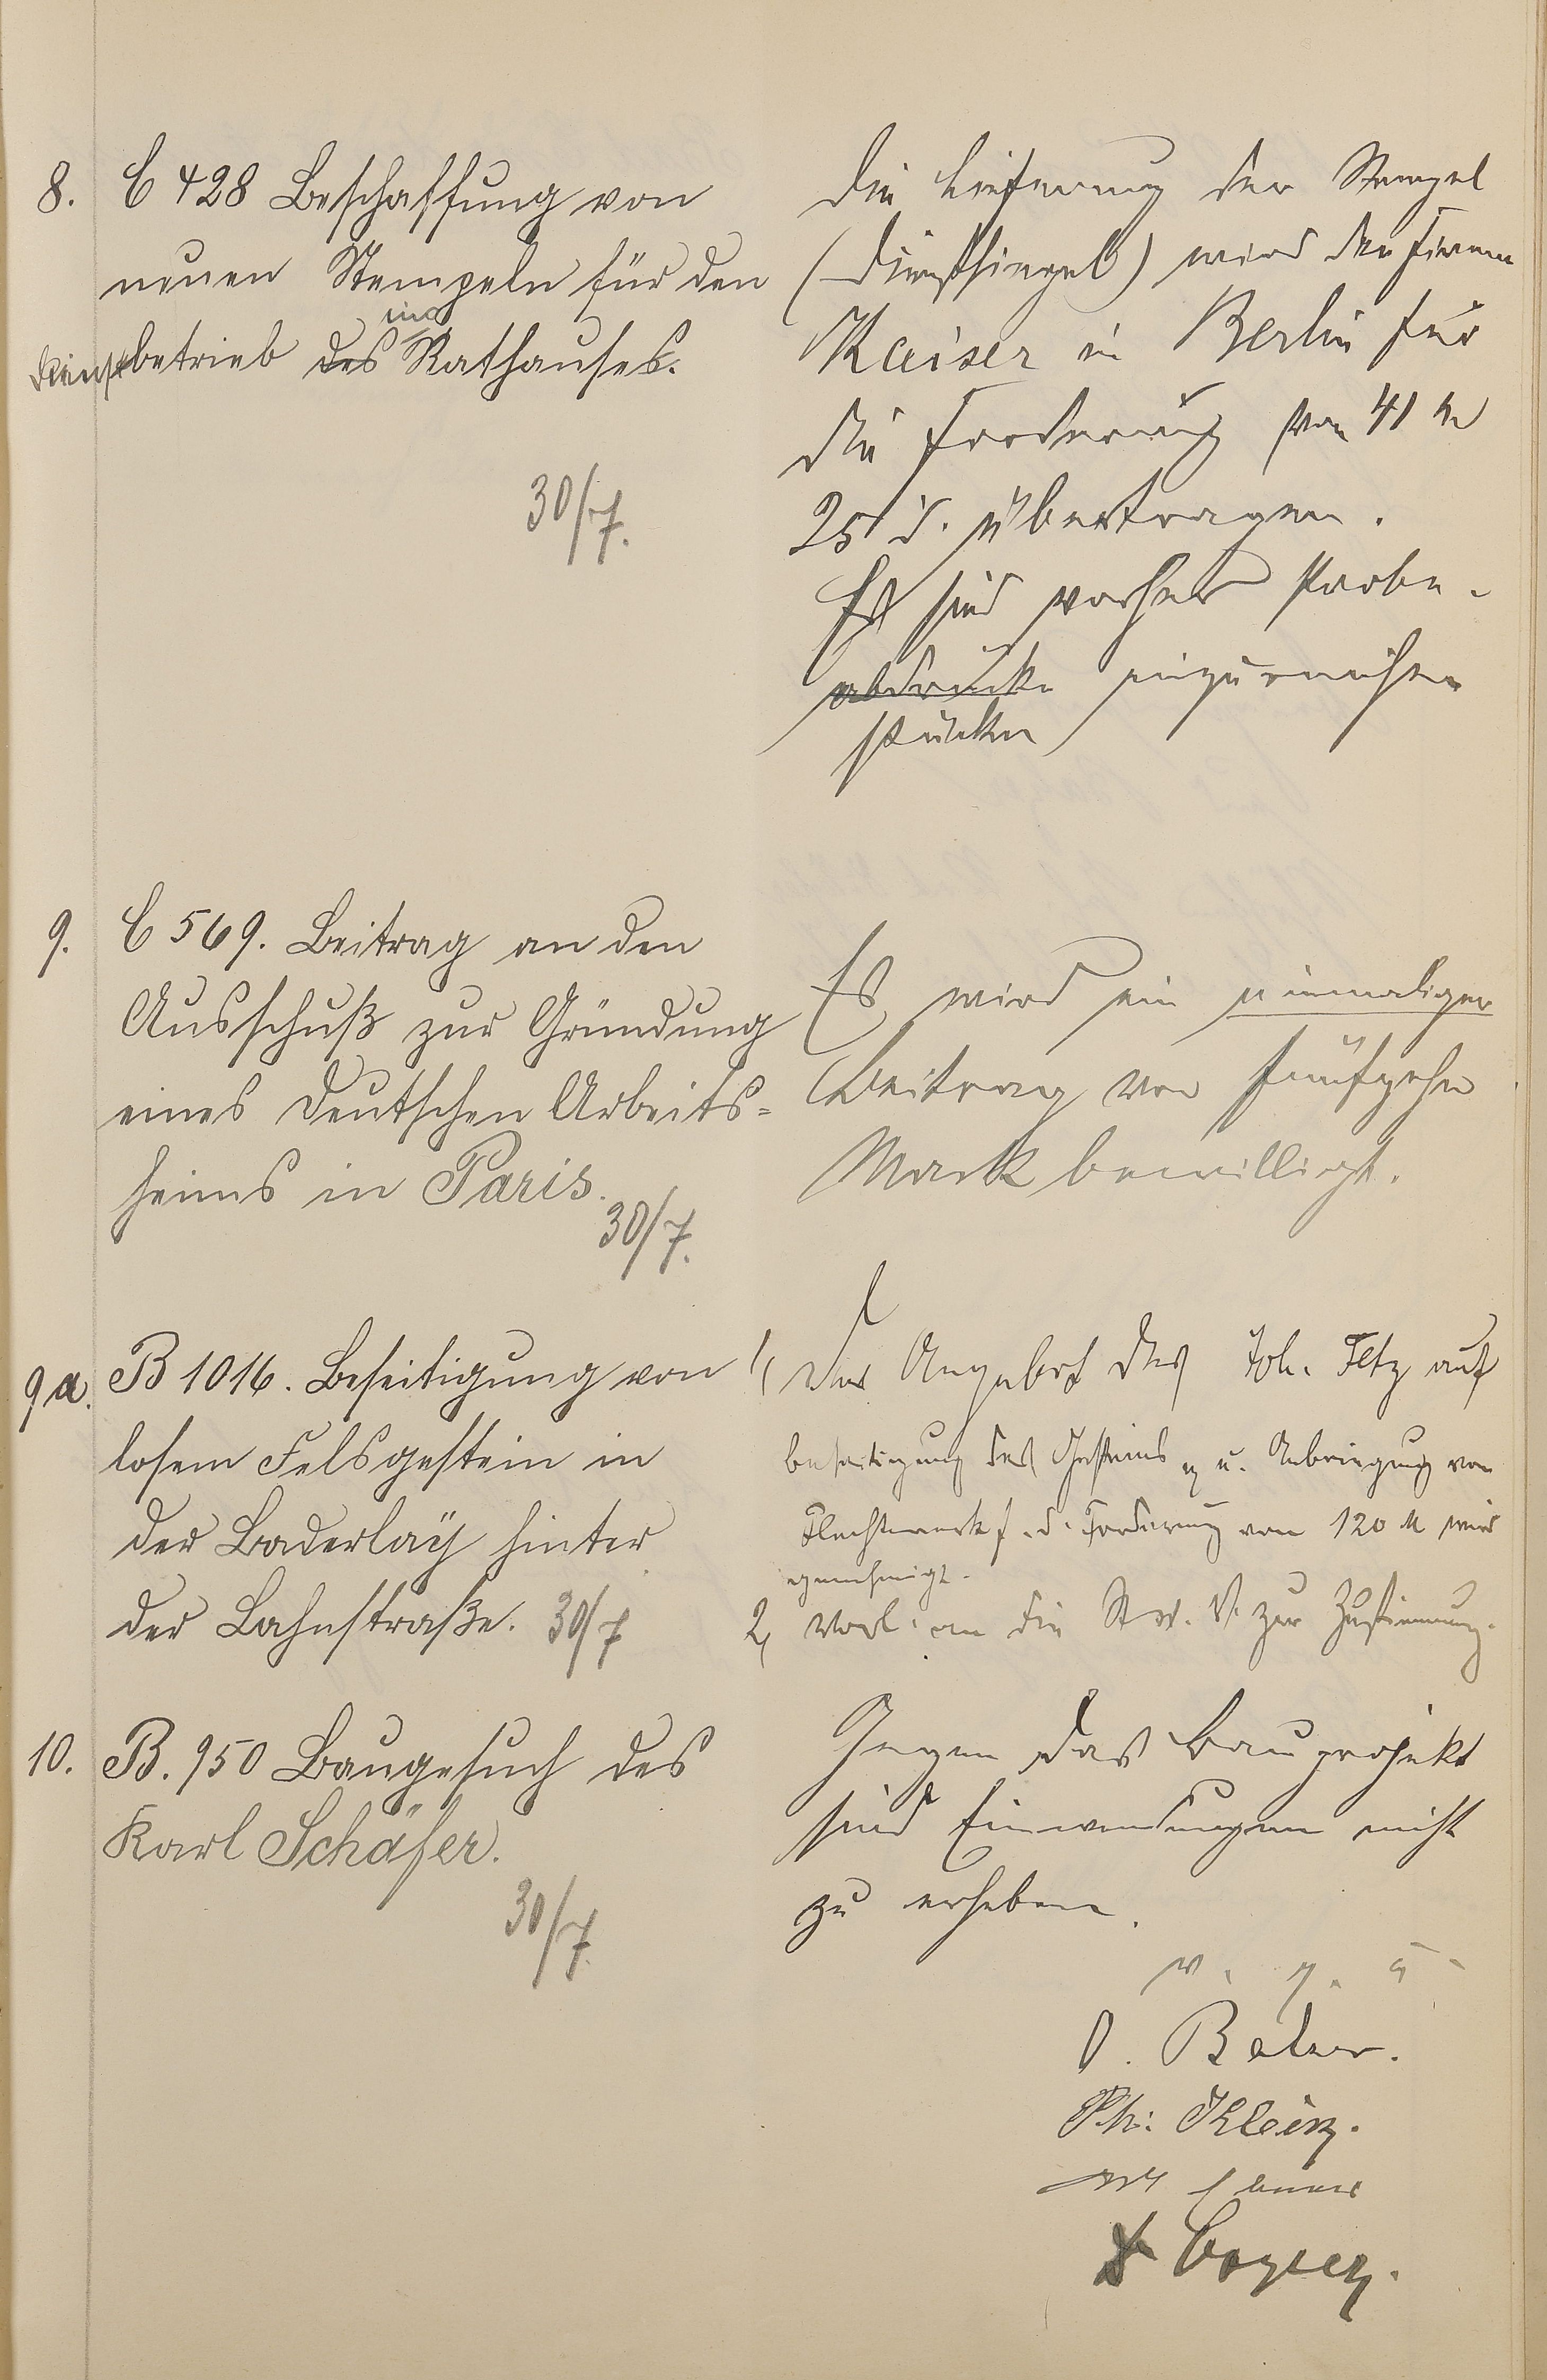 8.
C 428 Beschaffung von
neuen Stempeln für den
im
Dienstbetrieb des Rathauses.
30/7.
Die Lieferung der Stempel
(Dienstsiegel) wird der Firma
Kaiser in Berlin für
die Forderung von 41 M
25 d. übertragen.
Es sind vorher Probe-
abdrücke einzureichen
stücke
9.
C 569. Beitrag an den
Ausschuß zur Gründung
eines deutschen Arbeits=
heims in Paris.
30/7.
Es wird ein einmaliger
Beitrag von fünfzehn
Mark bewilligt.
9a.
B 1016. Beseitigung von
losem Felsgestein in
der Baderlaÿ hinter
der Lahnstraße. 30/7
1, Das Angebot des Joh. Fetz auf
Beseitigung des Gesteins u. Anbringung von
Flechtwerk f. d. Forderung von 120 M wird
genehmigt.
2, Vorl. an die St. V. V. zur Zustimmung.
10.
B. 950 Baugesuch des
Karl Schäfer.
30/7.
Gegen das Bauprojekt
sind Einwendungen nicht
zu erheben.
v. g. u.
O. Balzer.
Ph. Klein.